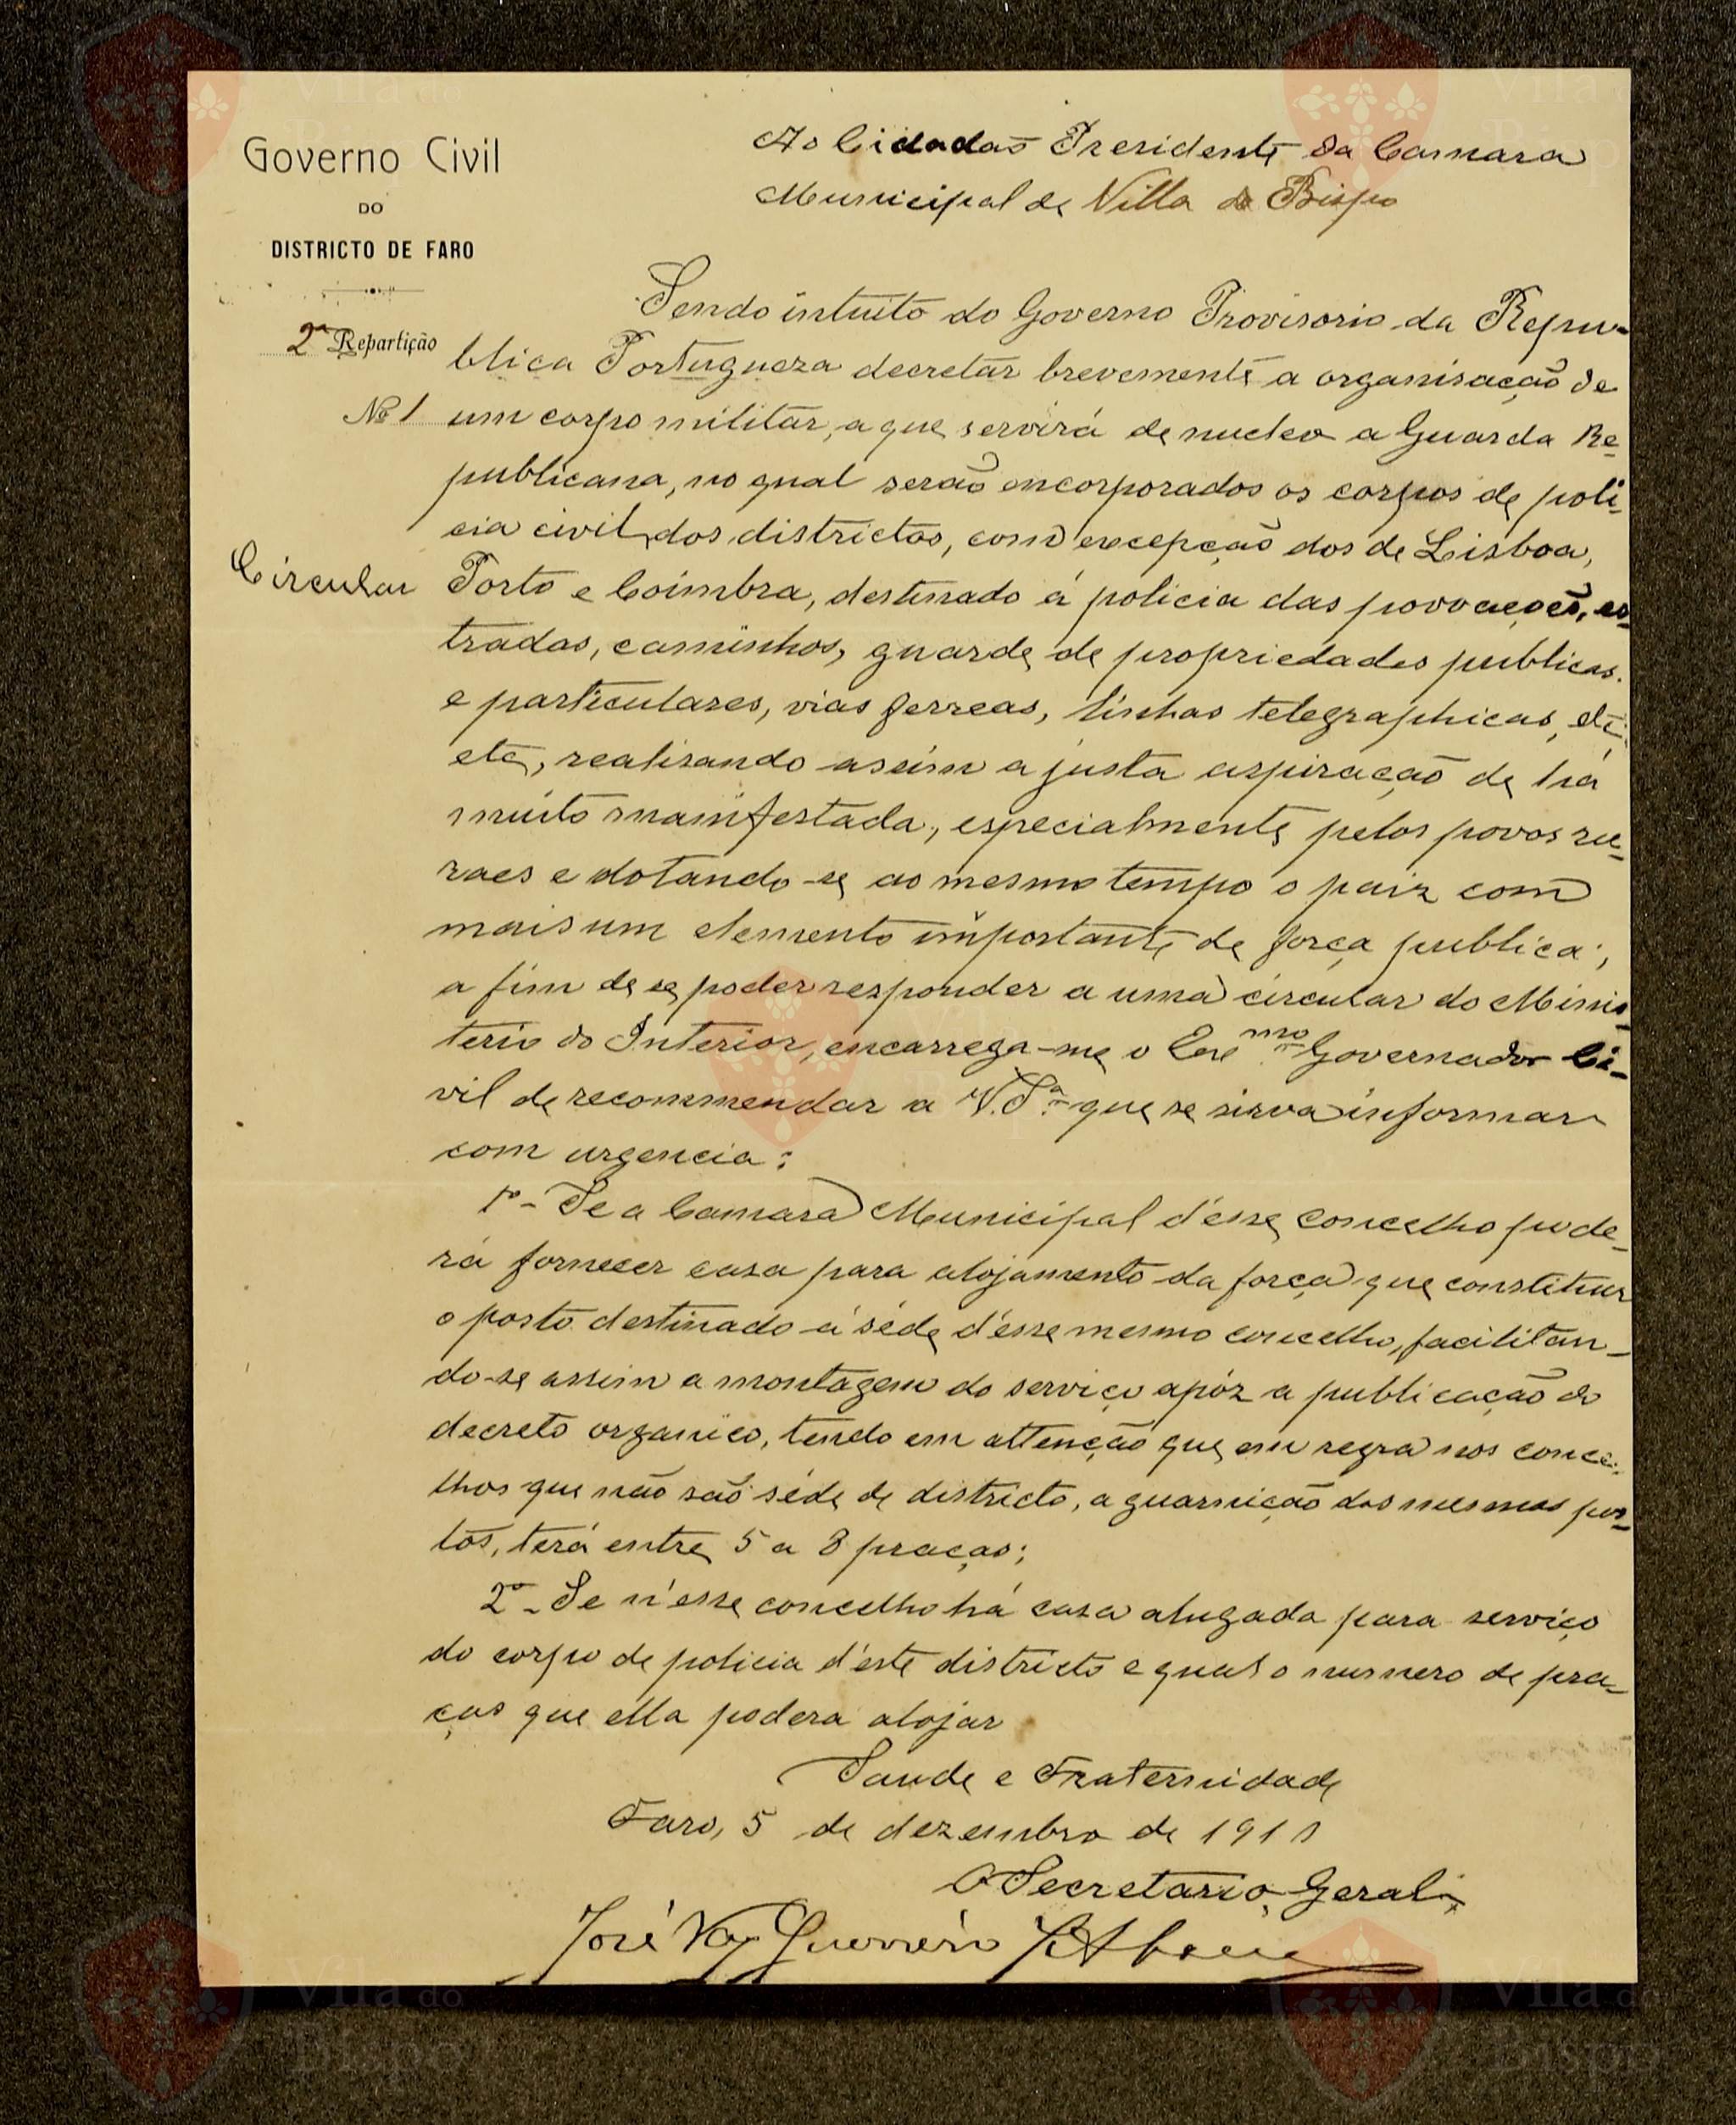 Governo Civil
DO
DISTRICTO DE FARO
2ª Repartição
Nº 1
Circular
Ao Cidadão Presidente da Camara
Municipal de Villa do Bispo
Sendo intuito do Governo Provisorio da Repu-
blica Portugueza decretar brevemente a organisação de
um corpo militar, a que servirá de nucleo a Guarda Re-
publicana, no qual serão encorporados os corpos de poli-
cia civil dos districtos, com excepção dos de Lisboa,
Porto e Coimbra, destinado á policia das povoações, es-
tradas, caminhos, guarda de propriedades publicas
e particulares, vias ferreas, linhas telegraphicas, etc.
etc, realisando assim a justa aspiração de há
muito manifestada, especialmente pelos povos ru-
raes e dotando-se ao mesmo tempo o paiz com
mais um elemento importante de força publica;
a fim de se poder responder a uma circular do Minis-
terio do Interior, encarrega-me o Exmo Governador Ci-
vil de recommendar a V. Sª que se sirva informar
com urgencia:
1º - Se a Camara Municipal d'esse concelho pode-
rá fornecer casa para alojamento da força que constituir
o posto destinado á séde d'esse mesmo concelho, facilitan-
do-se assim a montagem do serviço apóz a publicação do
decreto organico, tendo em attenção que em regra nos conce-
lhos que não são séde de districto, a guarnição dos mesmos pos-
tos, terá entre 5 a 8 praças;
2º - Se n'esse concelho há casa alugada para serviço
do corpo de policia d'este districto e qual o numero de pra-
ças que ella poderá alojar
Saude e Fraternidade
Faro, 5 de dezembro de 1910
O Secretario Geral,
José Vaz Guerreiro
Vila do
Bispo